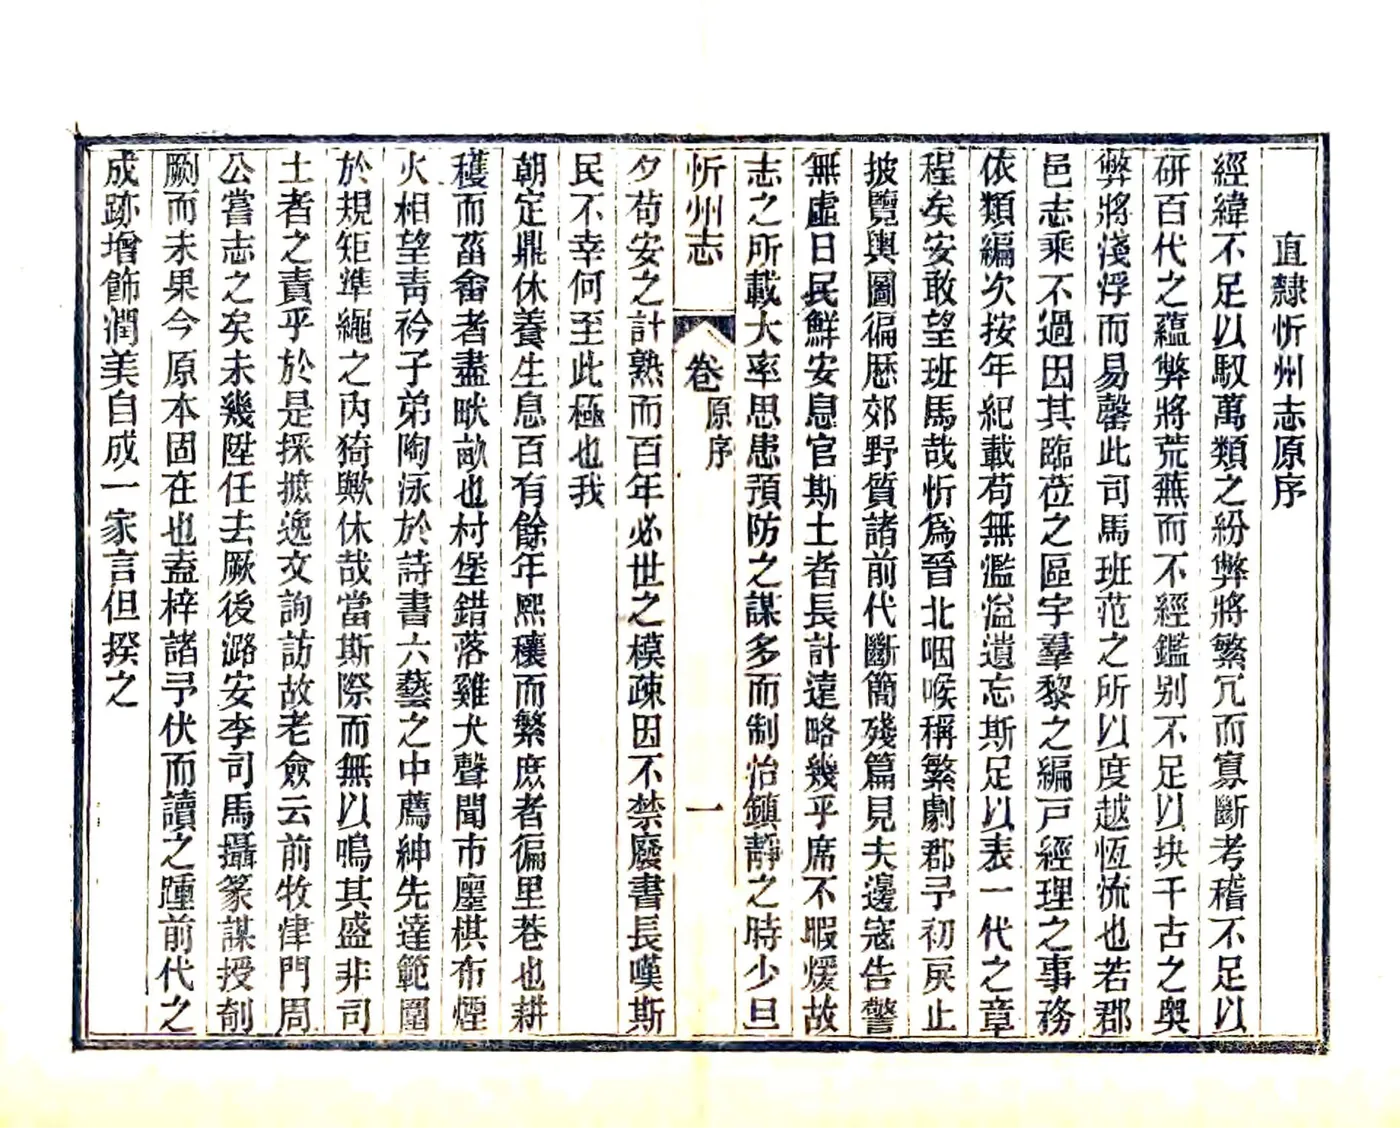 直隸忻州志原序
經緯不足以馭萬類之紛弊將繁冗而寡斷考稽不足以
研百代之蘊弊將荒蕪而不經鑑别不足以抉千古之奥
弊將淺浮而易罄此司馬班范之所以度越恆流也若郡
邑志乘不過因其臨莅之區宇羣黎之編戸經理之事務
依類編次按年紀載苟無濫溢遺忘斯足以表一代之章
程矣安敢望班馬哉忻爲晉北咽喉稱繁劇郡予初戾止
披覽輿圖徧歴郊野質諸前代斷簡殘篇見夫邊寇告警
無虛日民鮮安息官斯土者長計遠略幾乎席不暇煖故
志之所載大率思患預防之謀多而制治鎮靜之時少旦
忻州志
卷
原序
一
夕苟安之計熟而百年必世之模疎因不禁廢書長嘆斯
民不幸何至此極也我
朝定鼎休養生息百有餘年熙穰而繁庶者徧里巷也耕
穫而菑畬者盡畎畝也村堡錯落雞犬聲聞市廛棋布煙
火相望靑衿子弟陶泳於詩書六藝之中薦紳先達範圍
於規矩準繩之内猗歟休哉當斯際而無以鳴其盛非司
土者之責乎於是採摭逸文詢訪故老僉云前牧津門周
公嘗志之矣未幾陞任去厥後潞安李司馬攝篆謀授剞
劂而未果今原本固在也盍梓諸予伏而讀之踵前代之
成跡增飾潤美自成一家言但揆之